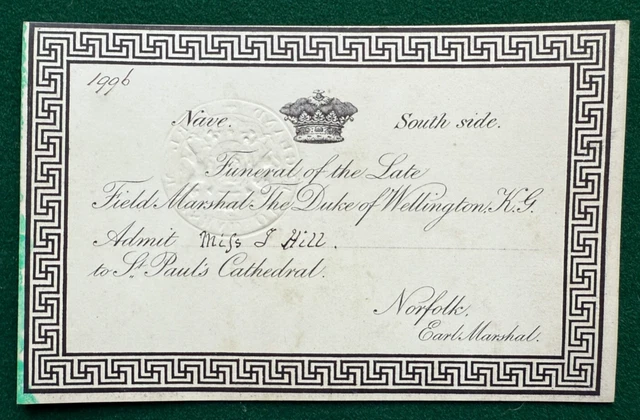 1996
Nave. South side.
Funeral of the Late
Field Marshal The Duke of Wellington, K.G.
Admit Miss J Hill.
to St. Paul's Cathedral.
Norfolk,
Earl Marshal.